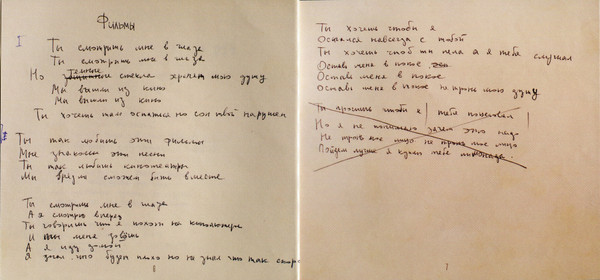 Фильмы
I
Ты смотришь мне в глаза
Ты смотришь мне в глаза
Но темные стекла хранят мою душу
Мы вышли из кино
Мы вышли из кино
Ты хочешь там остаться но сон твой нарушен
Ты так любишь эти фильмы
Мне знакомы эти песни
Ты так любишь кинотеатры
Мы вряд ли сможем быть вместе
Ты смотришь мне в глаза
А я смотрю вперед
Ты говоришь что я похож на киноактера
И ты меня зовёшь
А я иду домой
Я знал что будет плохо но не знал что так скоро
Ты хочешь чтобы я
Остался навсегда с тобой
Ты хочешь чтоб ты пела а я тебя слушал
Оставь меня в покое
Оставь меня в покое
Оставь меня в покое не тронь мою душу
Ты просишь чтобы я тебя поцеловал
Но я не понимаю зачем это надо
Не тронь мое лицо не тронь мое лицо
Пойдем лучше я куплю тебе